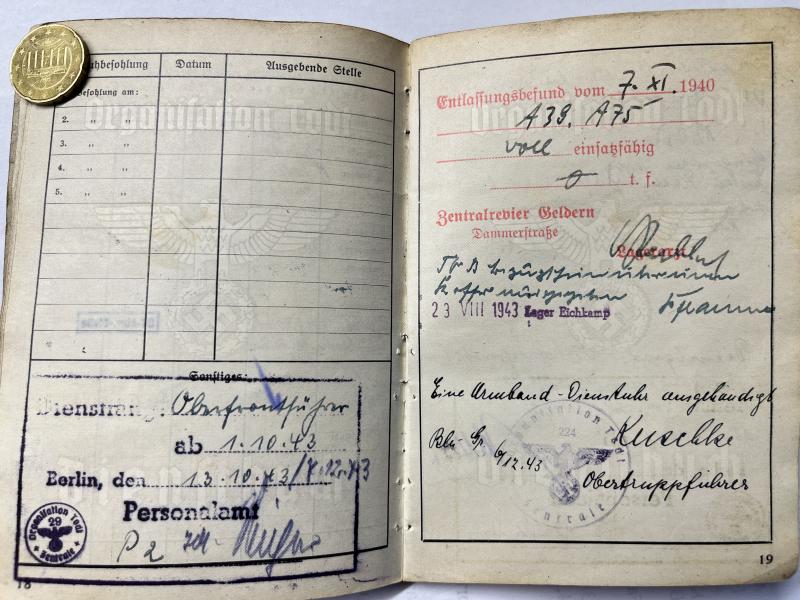 Datum
Ausgebende Stelle
befohlung am:
2. " "
3. " "
4. " "
5. " "
Sonstiges:
Dienstrang: Oberfrontführer
ab 1.10.43
Berlin, den 13.10.43/7.12.43
Personalamt
P 2
Organisation Todt
29
Zentrale
18
Entlassungsbefund vom 7. XI. 1940
A 39, A 75
voll einsatzfähig
t. f.
Zentralrevier Geldern
Dammerstraße
Lagerarzt
23 VIII 1943 Lager Eichkamp
Eine Armband-Dienstuhr ausgehändigt
Bln-Gr. 6/12.43
Kuschke
Obertruppführer
Organisation Todt
224
Zentrale
19